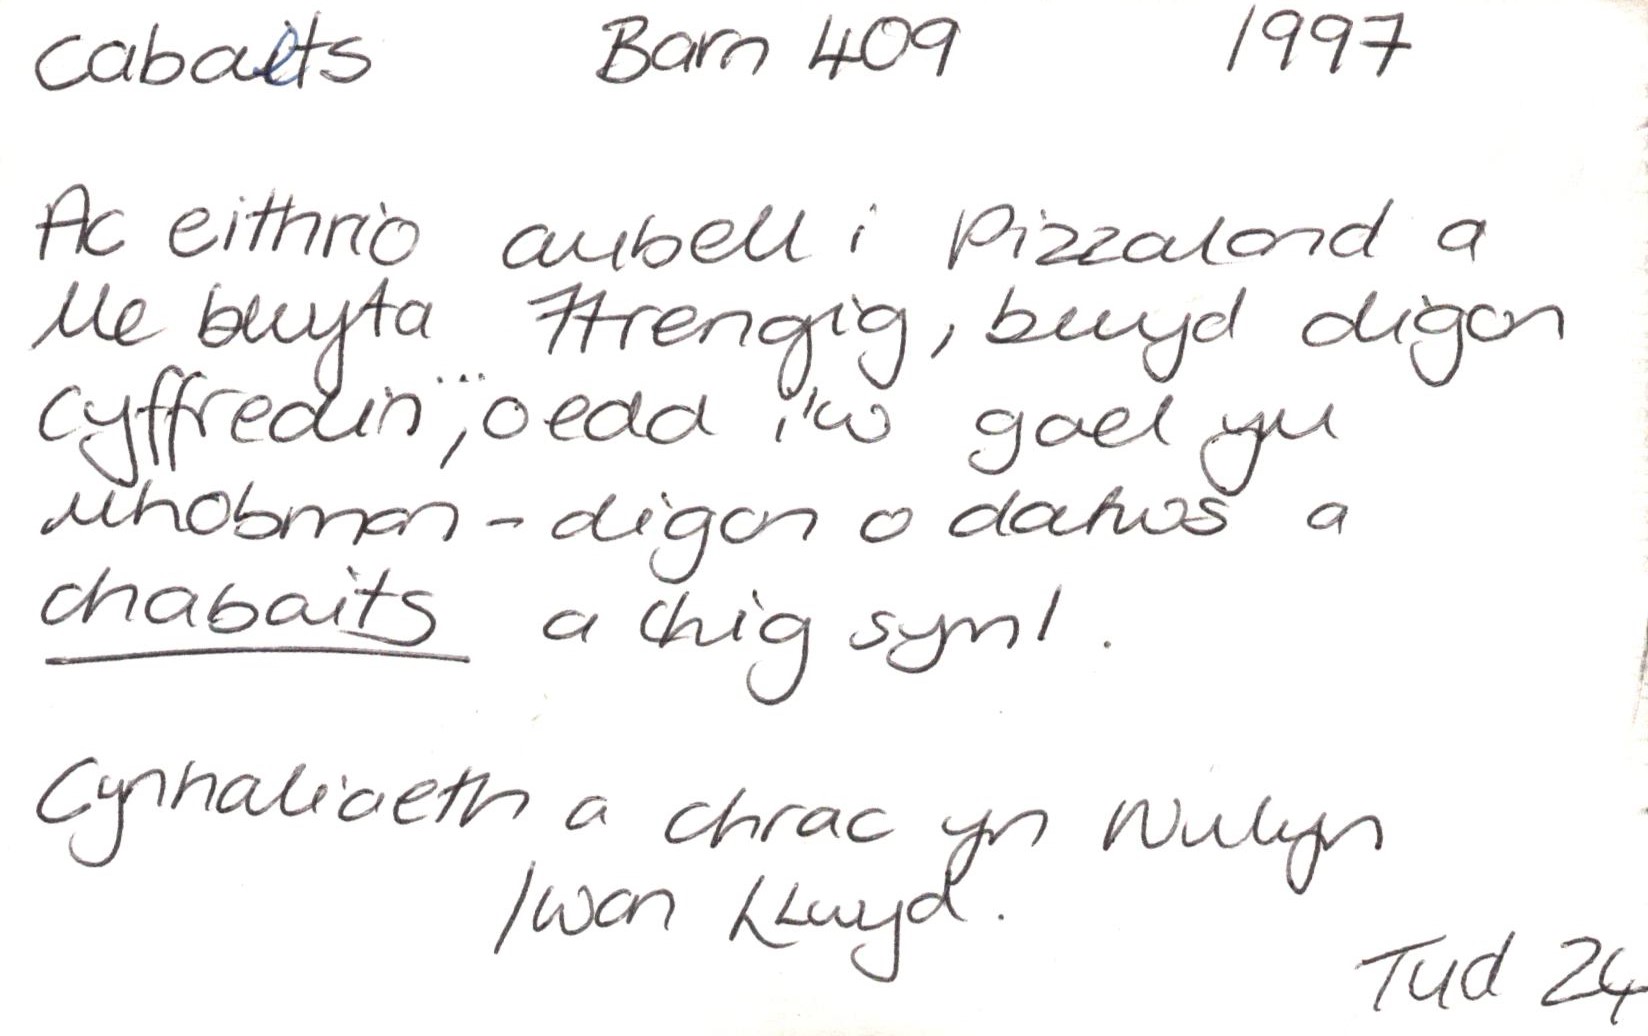 cabaets Barn 409 1997
Ac eithrio ambell i Pizzaland a
lle bwyta Ffrengig, bwyd digon
cyffredin ..., oedd i'w gael ym
mhobman - digon o datws a
chabaits a chig syml.
Cynhaliaeth a chrac yn Nulyn
Iwan Llwyd.
Tud 24